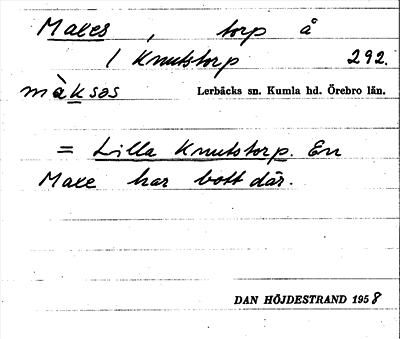 Maxes, torp å
/ Knutstorp 292.
màksas Lerbäcks sn. Kumla hd. Örebro län.
= Lilla Knutstorp. En
Maxe har bott där.
DAN HÖJDESTRAND 1958